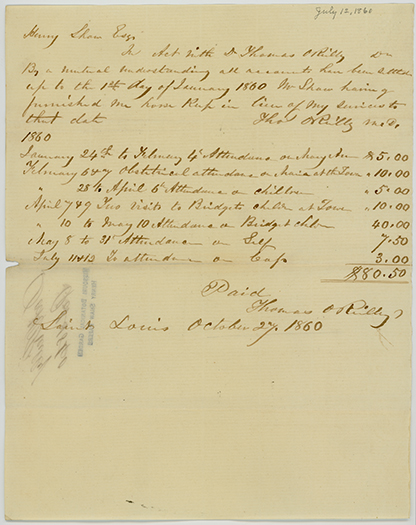 July 12, 1860
Henry Shaw Esq
In Act with Dr Thomas OReilly Dr
By a mutual understanding all accounts have been settled
up to the 1st day of January 1860 Mr Shaw having
furnished me horse keep in lieu of my services to
that date Thos OReilly M.D.
1860
January 24th to February 4th Attendance on Mary Ann $5.00
February 6 & 7 Obstetrical attendance on Maria at the Tower " 10.00
" 28 to April 6th Attendance on children " 5.00
April 7 & 9 Two visits to Bridgets child at Tower " 10.00
" 10 to May 10 Attendance on Bridget child 40.00
May 8 to 31st Attendance on Self 7.50
July 11 & 12 To attendance on 3.00
$80.50
Paid
Thomas OReilly
Saint Louis October 27. 1860